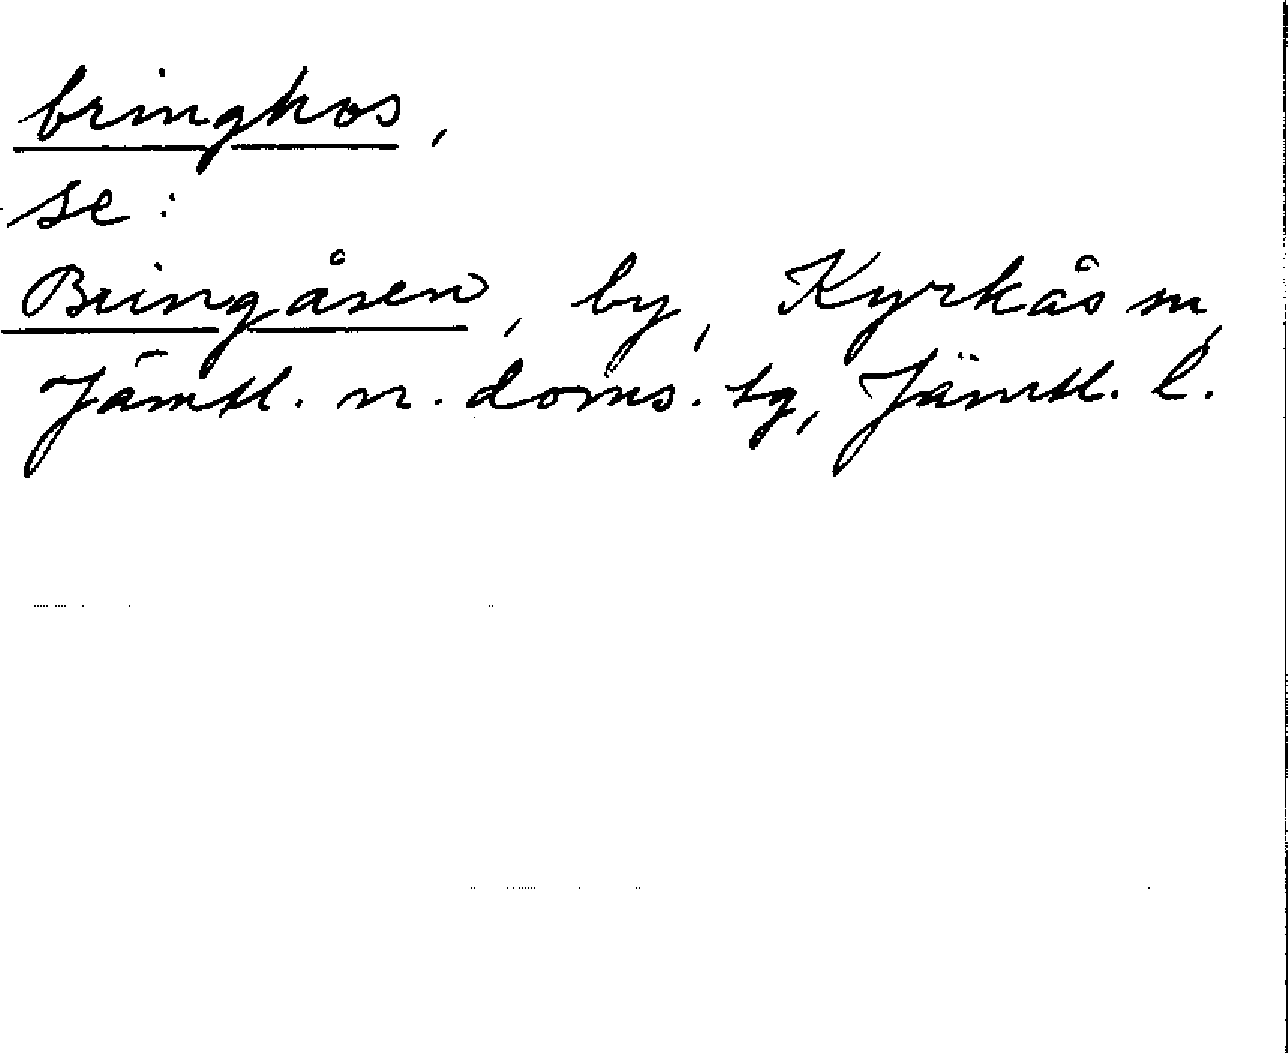 bringkos,
se:
Bringåsen, by, Kyrkås sn,
Jämtl. n. doms. tg, Jämtl. l.